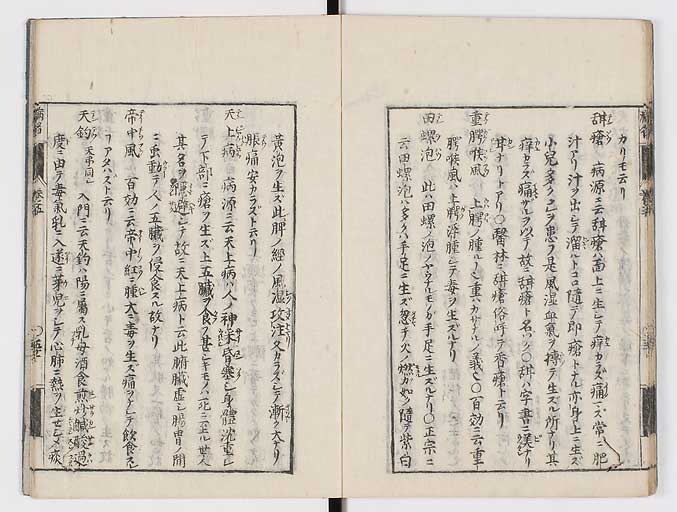 カリモ云リ
甜瘡 病源ニ云甜瘡ハ面上ニ生シテ痒カラズ痛マズ常ニ肥
汁アリ汁ヲ出シテ溜ルトコロ隨テ即瘡トナル亦身上ニ生ズ
小兒多ク之ヲ患フ是風湿血氣ヲ搏テ生ズル所ナリ其
痒カラズ痛サルヲ以テ故ニ甜瘡ト名ハク〇甜ハ字書ニ美ナリ
甘ナリトアリ〇醫林ニ甜瘡俗呼テ香瘡ト云リ
重腭喉風 上腭ノ腫ルヽヲ重カサナルノ義ナリ〇百効ニ云重
腭喉風ハ上腭浮腫シテ毒ヲ生ズルナリ
田螺泡 此ハ田螺ノ泡ノヤウナルモノガ手足ニ生ズルナリ〇正宗ニ
云田螺泡ハ多クハ手足ニ生ズ忽チ火ノ燃カ如ク隨テ紫白
黄泡ヲ生ズ此脾ノ經ノ風湿攻注又カラズシテ漸ク大ナリ
脹痛安カラズト云リ
天上病 病源ニ云天上病ハ人ノ神采昏塞シ身體沈重シ
テ下部ニ瘡ヲ生ズ上五臓ヲ食フ甚シキモノハ死ニ至ル世人
其名ヲ テ故ニ天上病ト云此腑臓虚シ腸胃ノ間
ニ虫動テ人ノ五臓ヲ侵食スル故ナリ
帝中風 百効ニ云帝中紅ニ腫大ニ毒ヲ生ズ痛ヲナシテ飲食ス
ヿアタハズト云リ
天釣 天弔同シ 入門ニ云天釣ハ陽ニ屬ス乳母酒食煎炒鹹酸過
度ニ由テ毒氣乳ニ入遂ニ 兒ヲシテ心肺ニ熱ヲ生セシメ痰